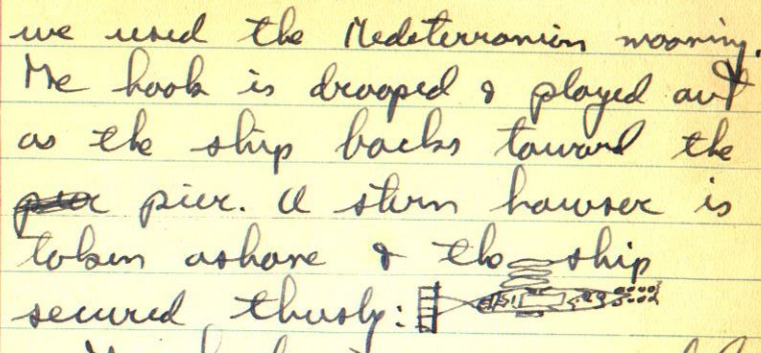 we used the Mediterranian mooring.
The hook is drooped & played out
as the ship backs toward the
pier. A stern hawser is
taken ashore & the ship
secured thusly: